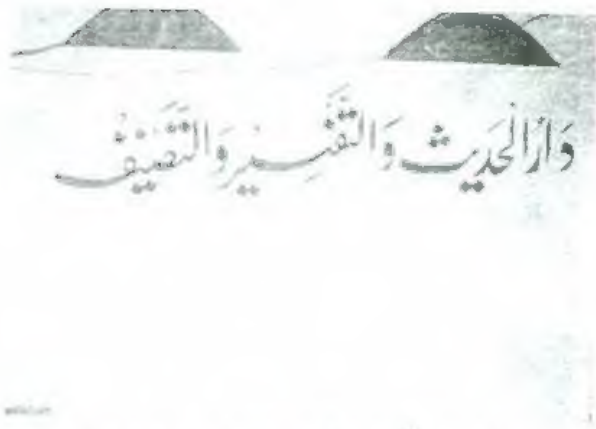 دَارُ الْحَدِيث وَالتَّفْسِيْرِ وَالتَّصْنِيْفْ